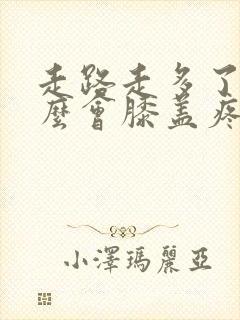 走路走多了
麼會膝蓋疼
小澤瑪麗亞